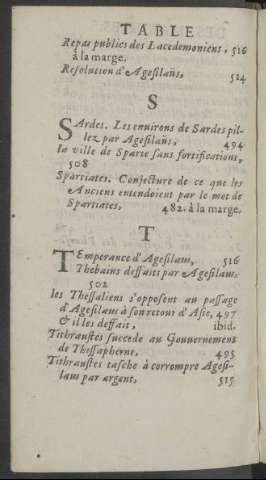 TABLE
Repas publics des Lacedemoniens, 516
à la marge.
Resolution d'Agesilaüs, 524
S
SArdes. Les environs de Sardes pil-
lez par Agesilaüs, 494
la ville de Sparte sans fortifications,
508
Spartiates. Conjecture de ce que les
Anciens entendoient par le mot de
Spartiates, 482. à la marge.
T
TEmperance d'Agesilaus, 516
Thebains deffaits par Agesilaus,
502
les Thessaliens s'opposent au passage
d'Agesilaus à son retour d'Asie, 497
& il les deffait, ibid.
Tithraustes succede au Gouvernement
de Thessapherne, 495
Tithraustes tasche à corrompre Agesi-
laus par argent, 515